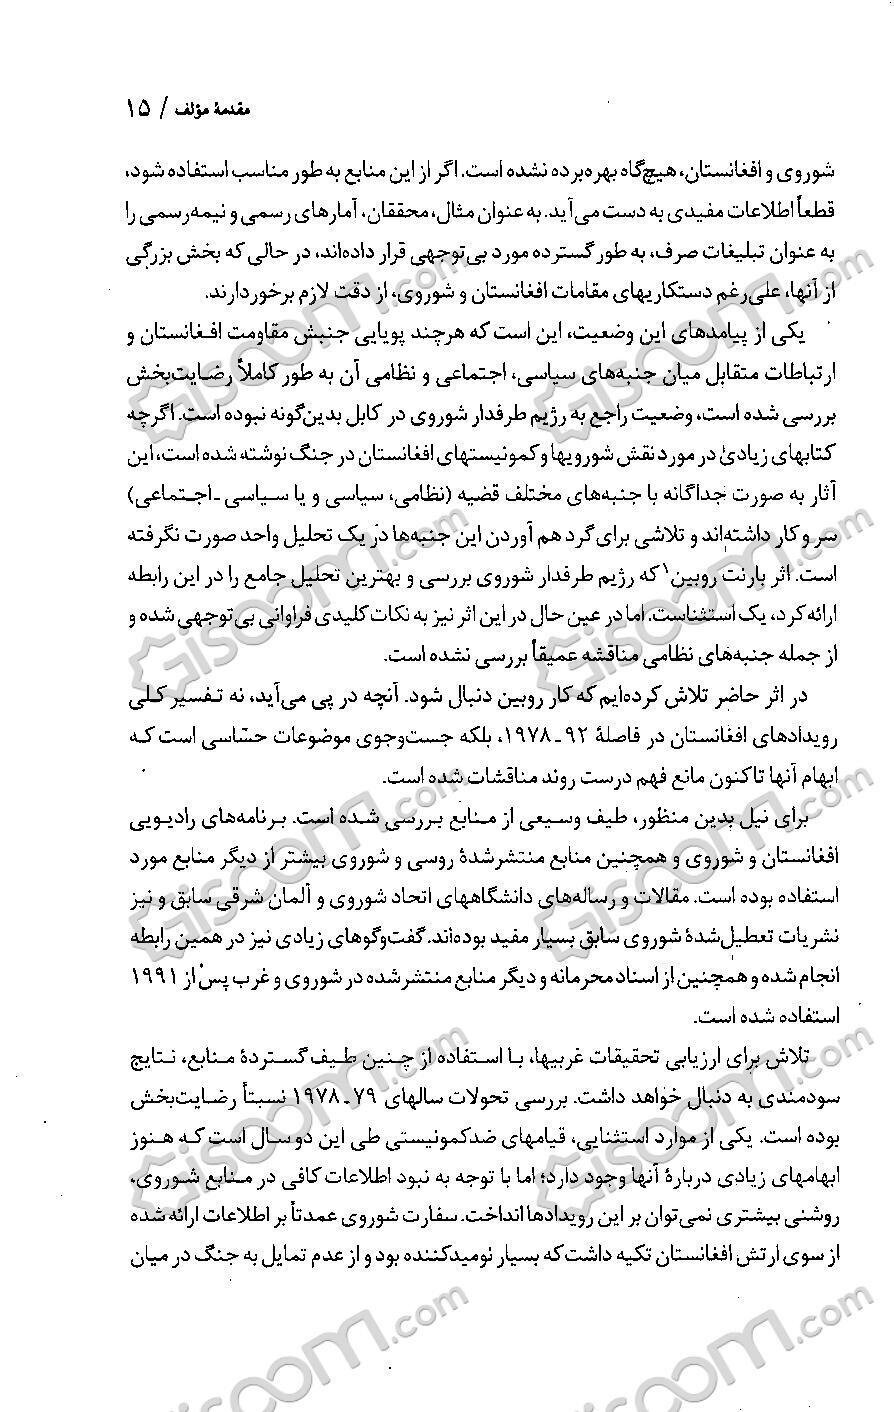 مقدمهٔ مؤلف / ۱۵
شوروی و افغانستان، هیچ‌گاه بهره برده نشده است. اگر از این منابع به طور مناسب استفاده شود،
قطعاً اطلاعات مفیدی به دست می‌آید. به عنوان مثال، محققان، آمارهای رسمی و نیمه‌رسمی را
به عنوان تبلیغات صرف، به طور گسترده مورد بی‌توجهی قرار داده‌اند، در حالی که بخش بزرگی
از آنها، علی‌رغم دستکاریهای مقامات افغانستان و شوروی، از دقت لازم برخوردارند.
یکی از پیامدهای این وضعیت، این است که هرچند پویایی جنبش مقاومت افغانستان و
ارتباطات متقابل میان جنبه‌های سیاسی، اجتماعی و نظامی آن به طور کاملاً رضایت‌بخش
بررسی شده است، وضعیت راجع به رژیم طرفدار شوروی در کابل بدین‌گونه نبوده است. اگرچه
کتابهای زیادی در مورد نقش شورویها و کمونیستهای افغانستان در جنگ نوشته شده است، این
آثار به صورت جداگانه با جنبه‌های مختلف قضیه (نظامی، سیاسی و یا سیاسی ـ اجتماعی)
سر و کار داشته‌اند و تلاشی برای گرد هم آوردن این جنبه‌ها در یک تحلیل واحد صورت نگرفته
است. اثر بارنت روبین۱ که رژیم طرفدار شوروی بررسی و بهترین تحلیل جامع را در این رابطه
ارائه کرد، یک استثناست. اما در عین حال در این اثر نیز به نکات کلیدی فراوانی بی‌توجهی شده و
از جمله جنبه‌های نظامی مناقشه عمیقاً بررسی نشده است.
در اثر حاضر تلاش کرده‌ایم که کار روبین دنبال شود. آنچه در پی می‌آید، نه تفسیر کلی
رویدادهای افغانستان در فاصلهٔ ۹۲ـ۱۹۷۸، بلکه جست‌وجوی موضوعات حسّاسی است که
ابهام آنها تاکنون مانع فهم درست روند مناقشات شده است.
برای نیل بدین منظور، طیف وسیعی از منابع بررسی شده است. برنامه‌های رادیویی
افغانستان و شوروی و همچنین منابع منتشرشدهٔ روسی و شوروی بیشتر از دیگر منابع مورد
استفاده بوده است. مقالات و رساله‌های دانشگاههای اتحاد شوروی و آلمان شرقی سابق و نیز
نشریات تعطیل‌شدهٔ شوروی سابق بسیار مفید بوده‌اند. گفت‌وگوهای زیادی نیز در همین رابطه
انجام شده و همچنین از اسناد محرمانه و دیگر منابع منتشرشده در شوروی و غرب پس از ۱۹۹۱
استفاده شده است.
تلاش برای ارزیابی تحقیقات غربیها، با استفاده از چنین طیف گستردهٔ منابع، نتایج
سودمندی به دنبال خواهد داشت. بررسی تحولات سالهای ۷۹ـ۱۹۷۸ نسبتاً رضایت‌بخش
بوده است. یکی از موارد استثنایی، قیامهای ضدکمونیستی طی این دو سال است که هنوز
ابهامهای زیادی دربارهٔ آنها وجود دارد؛ اما با توجه به نبود اطلاعات کافی در منابع شوروی،
روشنی بیشتری نمی‌توان بر این رویدادها انداخت. سفارت شوروی عمدتاً بر اطلاعات ارائه شده
از سوی ارتش افغانستان تکیه داشت که بسیار نومیدکننده بود و از عدم تمایل به جنگ در میان
Gisoom.com
Gisoom.com
Gisoom.com
Gisoom.com
Gisoom.com
Gisoom.com
Gisoom.com
Gisoom.com
Gisoom.com
Gisoom.com